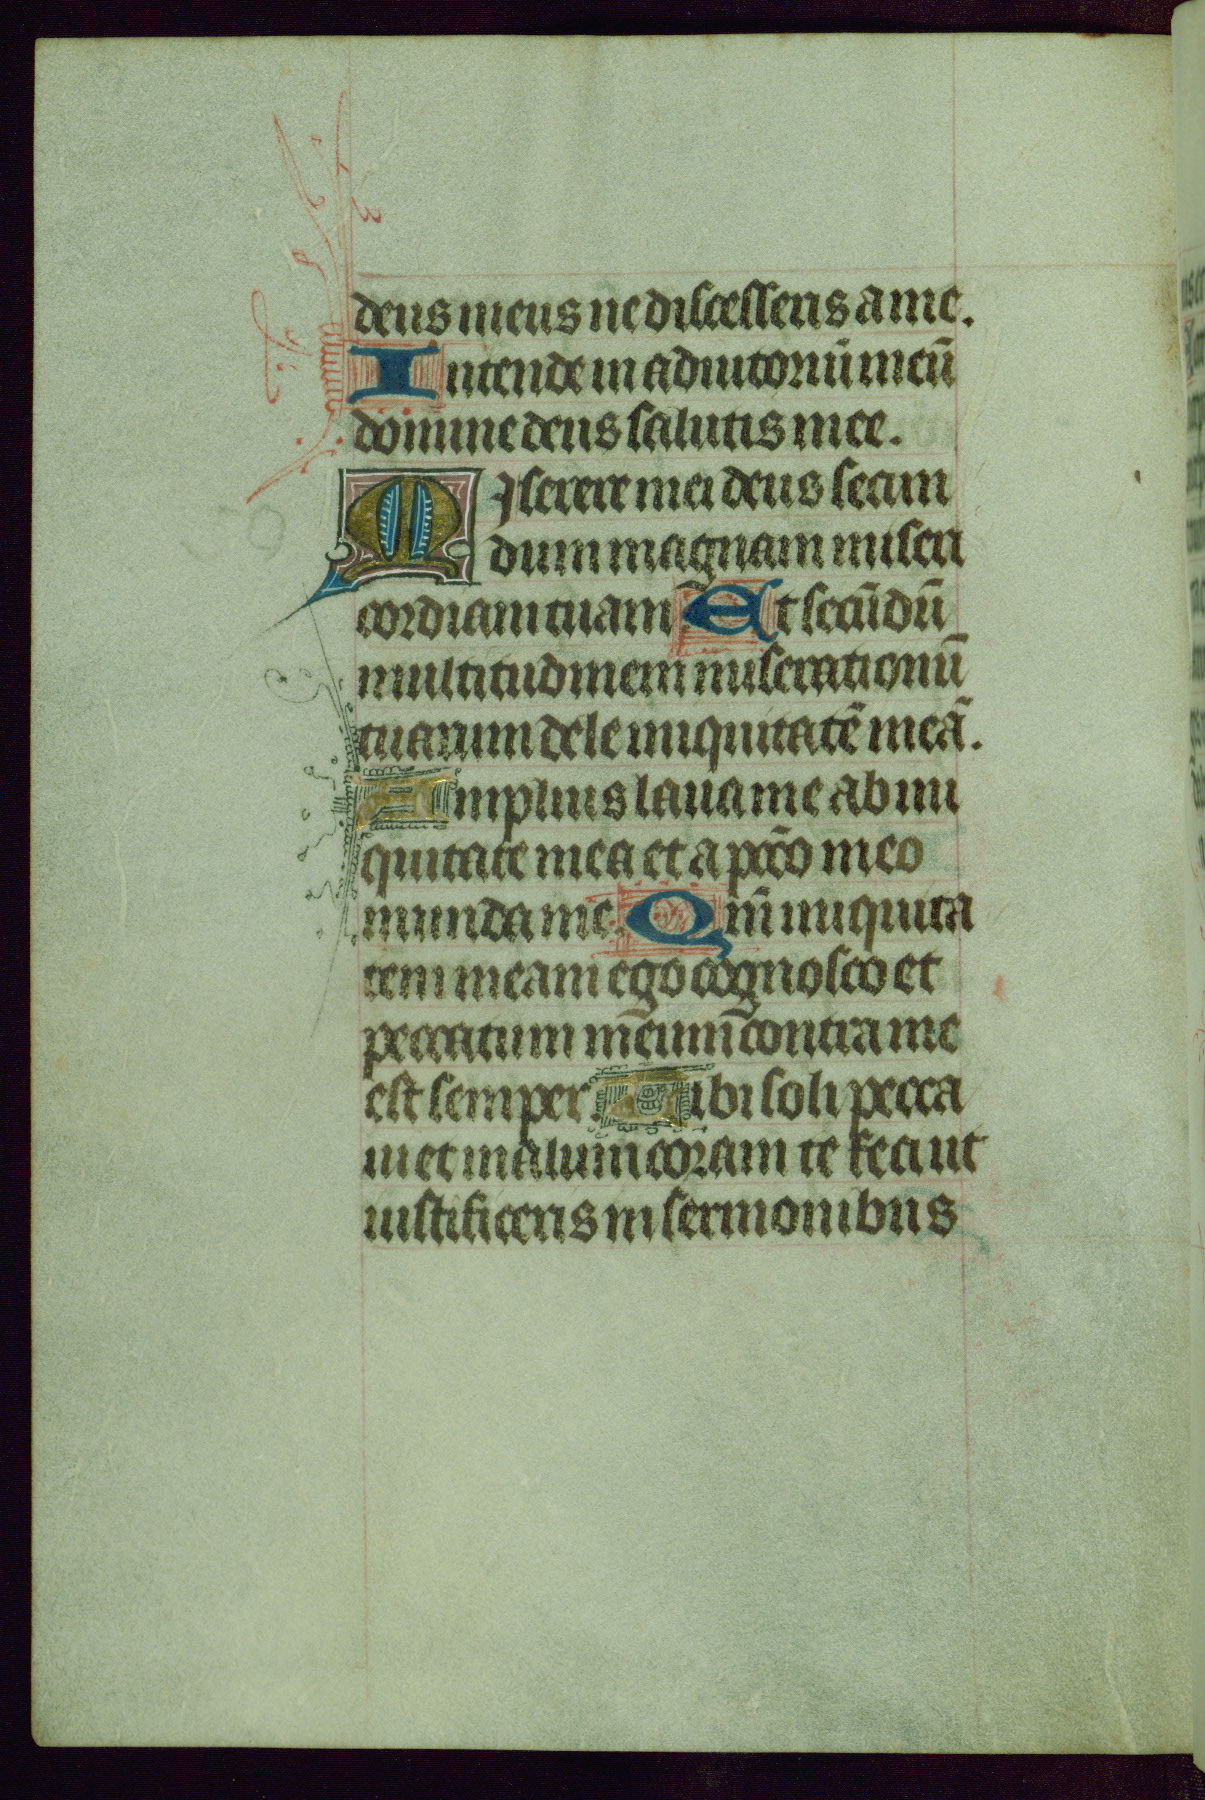 deus meus ne discesseris a me.
Intende in adiutoriū meū
domine deus salutis mee.
Miserere mei deus secun
dum magnam miseri
cordiam tuam Et secūdū
multitudinem miserationū
tuarum dele iniquitatē meā.
Amplius laua me ab ini
quitate mea et a pccō meo
munda me. Qm̄ iniquita
tem meam ego cognosco et
peccatum meum contra me
est semper. Tibi soli pecca
ui et malum coram te feci ut
iustificeris in sermonibus